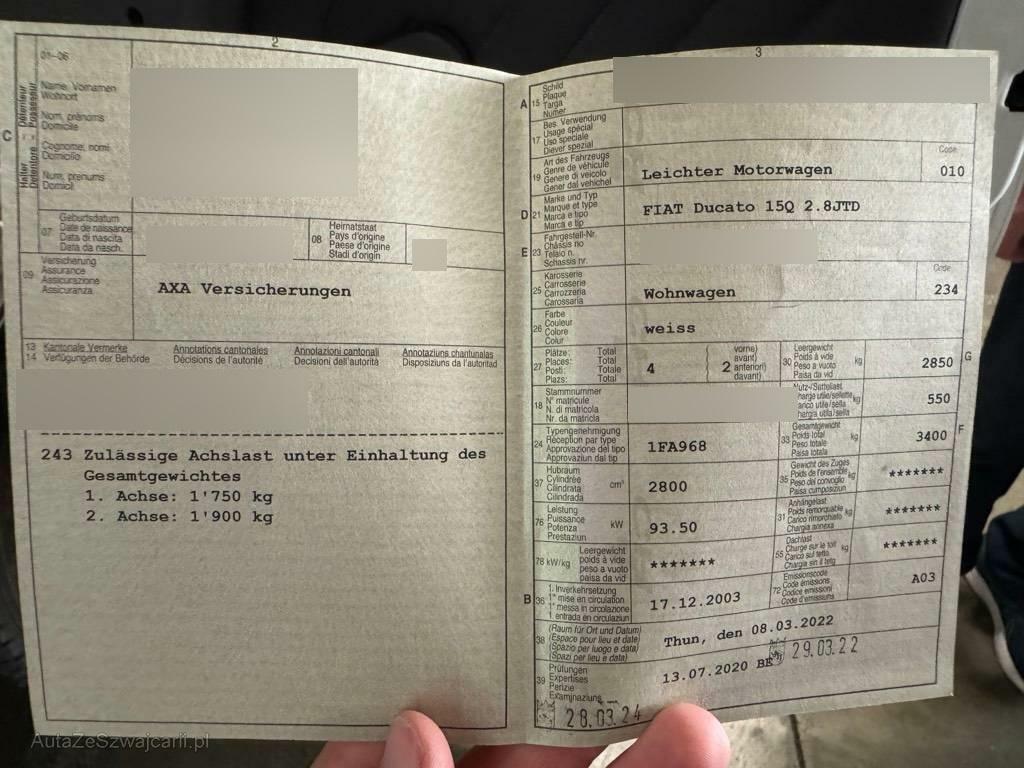 2
01-06
Halter Détenteur
Detentore Possessur
C
Name, Vornamen
Wohnort
Nom, prénoms
Domicile
Cognome, nomi
Domicilio
Num, prenums
Domicil
07
Geburtsdatum
Date de naissance
Data di nascita
Data da nasch.
08
Heimatstaat
Pays d'origine
Paese d'origine
Stadi d'origin
09
Versicherung
Assurance
Assicurazione
Assicuranza
AXA Versicherungen
13 Kantonale Vermerke
14 Verfügungen der Behörde
Annotations cantonales
Décisions de l'autorité
Annotazioni cantonali
Decisioni dell'autorità
Annotaziuns chantunalas
Disposiziuns da l'autoritad
243 Zulässige Achslast unter Einhaltung des
Gesamtgewichtes
1. Achse: 1'750 kg
2. Achse: 1'900 kg
3
A 15
Schild
Plaque
Targa
Numer
17
Bes. Verwendung
Usage spécial
Uso speciale
Diever spezial
19
Art des Fahrzeugs
Genre de véhicule
Genere di veicolo
Gener dal vehichel
Leichter Motorwagen
Code
010
D 21
Marke und Typ
Marque et type
Marca e tipo
Marca e tip
FIAT Ducato 15Q 2.8JTD
E 23
Fahrgestell-Nr.
Châssis no
Telaio n.
Schassis nr.
25
Karosserie
Carrosserie
Carrozzeria
Carossaria
Wohnwagen
Code
234
26
Farbe
Couleur
Colore
Colur
weiss
27
Plätze: Total
Places: Total
Posti: Totale
Plazs: Total
4
2
vorne)
avant)
anteriori)
davant)
30
Leergewicht
Poids à vide
Peso a vuoto
Paisa da vid
kg
2850
G
18
Stammnummer
N° matricule
N. di matricola
Nr. da matricla
Nutz-/Sattellast
charge utile/sellette
carico utile/sella
chargia utila/sella
kg
550
24
Typengenehmigung
Réception par type
Approvazione del tipo
Approvaziun dal tip
1FA968
33
Gesamtgewicht
Poids total
Peso totale
Paisa totala
kg
3400
F
37
Hubraum
Cylindrée
Cilindrata
Cilindrada
cm³
2800
35
Gewicht des Zuges
Poids de l'ensemble
Peso del convoglio
Paisa cumposiziun
kg
*******
76
Leistung
Puissance
Potenza
Prestaziun
kW
93.50
31
Anhängelast
Poids remorquable
Carico rimorchiato
Chargia annexa
kg
*******
78 kW/kg
Leergewicht
poids à vide
peso a vuoto
paisa da vid
*******
55
Dachlast
Charge sur le toit
Carico sul tetto
Chargia sin il tetg
kg
*******
B 36
1. Inverkehrsetzung
1re mise en circulation
1a messa in circolazione
1. entrada en circulaziun
17.12.2003
72
Emissionscode
Code émissions
Codice emissioni
Code d'emissiuns
A03
38
(Raum für Ort und Datum)
(Espace pour lieu et date)
(Spazio per luogo e data)
(Spazi per lieu e data)
Thun, den 08.03.2022
39
Prüfungen
Expertises
Perizie
Examinaziuns
13.07.2020 BE
29.03.22
28.03.24
AutaZeSzwajcarii.pl